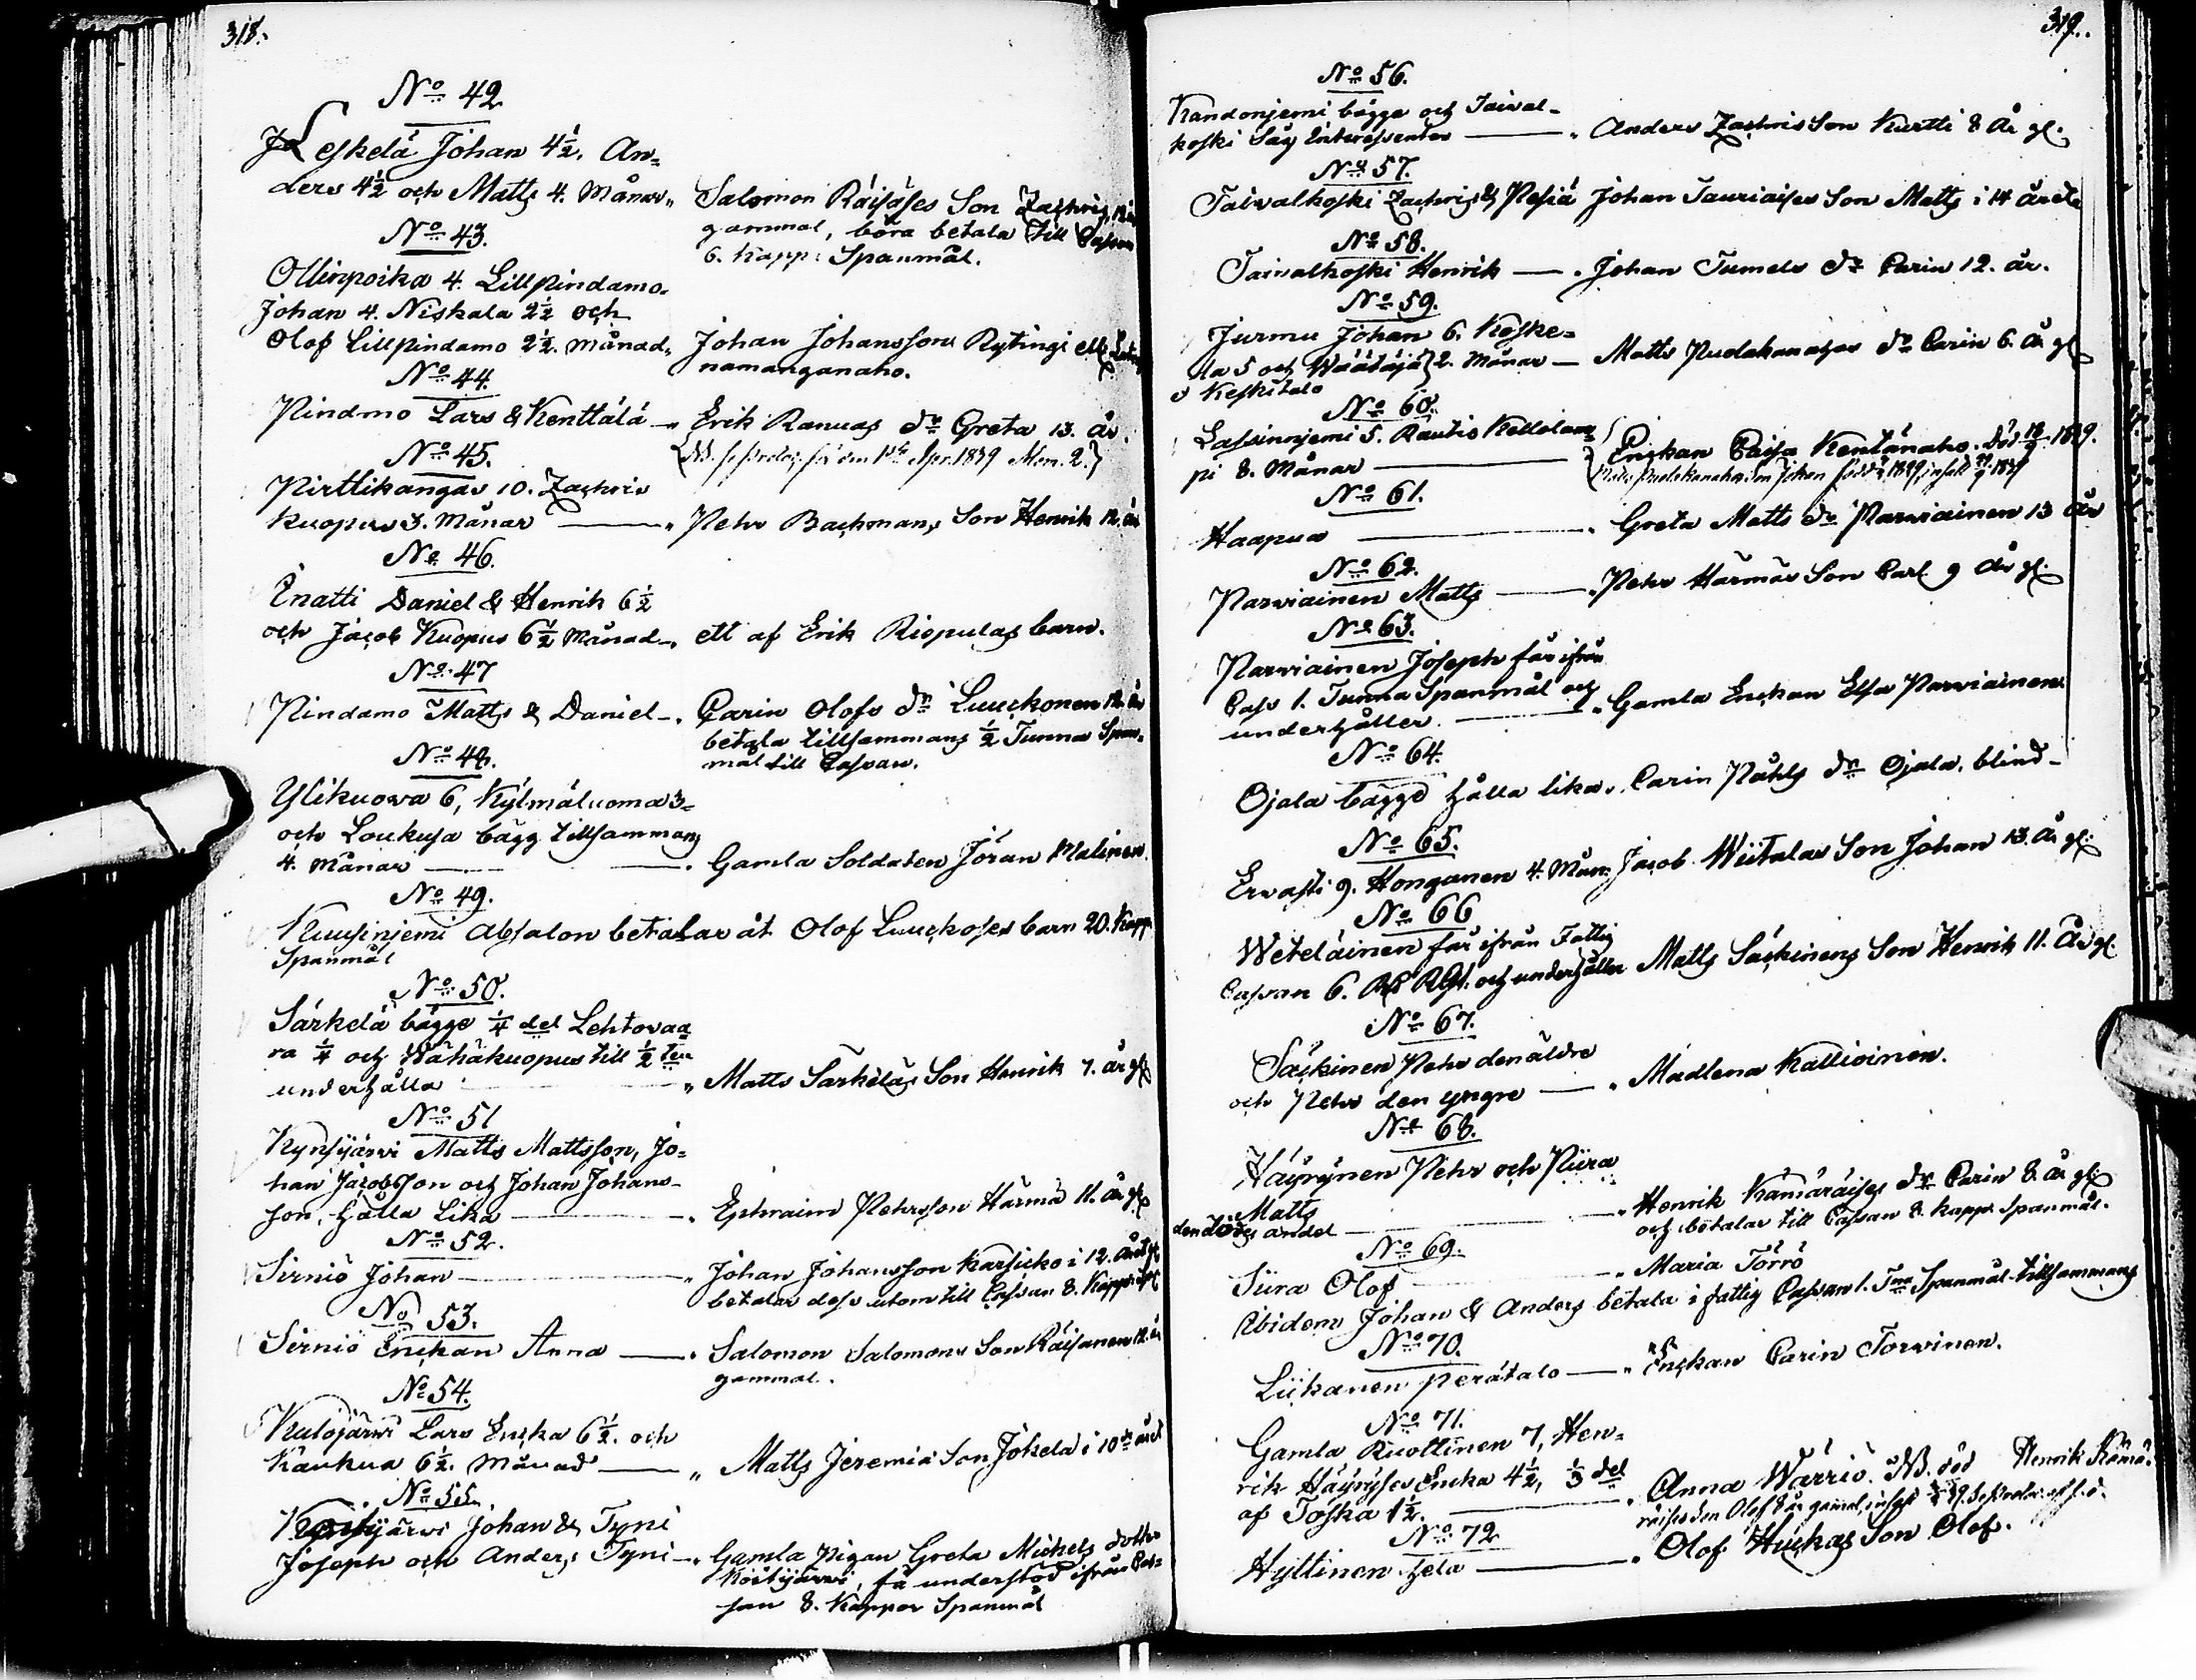 318.
No 42
Leskelä Johan 4½, An=
ders 4½ och Matts 4. Månar „ Salomon Räisäses Son Zachris, 12 år
gammal, böra betala till Cassan
6. Kapp: Spanmål.
No 43.
Ollinpoika 4. Lillpindamo
Johan 4. Niskala 2½ och
Olof Lillpindamo 2½. Månad „ Johan Johansson Rytingi
namanganaho.
No 44.
Pindmo Lars & Kenttälä — „ Erik Ranuas dr Greta 13. år.
No 45.
Pirttikangas 10. Zachris
Kuopus 3. Månar — „ Pehr Bachmans Son Henrik 12. år
No 46.
Enatti Daniel & Henrik 6½
och Jacob Kuopus 6½ Månad — „ ett af Erik Riepulas barn.
No 47
Pindamo Matts & Daniel — „ Carin Olofs dr Luuckonen 12. år
betala tillsammans ½ Tunna Span-
mål till Cassan.
No 48.
Ylikuova 6, Kylmäluoma 3=
och Loukusa bägg tillsammans
4. Månar — „ Gamla Soldaten Jöran Malinen.
No 49.
Kuusinjemi Absalon betalar åt Olof Luuckoses barn 20. Kapp.
Spanmål
No 50.
Särkelä bägge ¼ del Lehtovaa
ra ¼ och Wähäkuopus till ½ ten
underhålla — „ Matts Särkeläs Son Henrik 7. år gl
No 51
Kynsijärvi Matts Mattsson, Jo=
han Jacobsson och Johan Johans-
son, hålla Lika — „ Ephraim Pehrsson Härmä 11. år gl
No 52.
Sirniö Johan — „ Johan Johansson Karsicko i 12. året gl
betalar dess utom till Cassan 8. Kapp: Spl
No 53.
Sirniö Enckan Anna — „ Salomon Salomons Son Räisänen 12. år
gammal.
No 54.
Kulojärvi Lars Encka 6½. och
Kaukua 6½. Månad — „ Matts Jeremiæ Son Jokela i 10de året
No 55.
Kostijärvi Johan & Tyni
Joseph och Anders Tyni — „ Gamla Pigan Greta Michels dotter
Kostijärvi, få understöd ifrån Cas=
san 8. Kappar Spanmål
319.
No 56.
Kandonjemi bägge och Taival-
koski Såg Interessenter — „ Anders Zachris Son Kurtti 8 år gl.
No 57.
Taivalkoski Zachris & Pesiä Johan Tauriaises Son Matts i 14 året
No 58.
Taivalkoski Henrik — „ Johan Tumels dr Carin 12. år.
No 59.
Jurmu Johan 6. Keske=
la 5 och Väätäjä 2. Månar — Matts Pudakanahos dr Carin 6. år gl
o Keskitalo
No 60.
Lassinnjemi 5. Rautio Kellolam
pi 8. Månar — Enckan Caisa Kentänaho. död 18/2 1839.
No 61.
Haapua — „ Greta Matts dr Parviainen 13 år
No 62.
Parviainen Matts — „ Pehr Härmäs Son Carl 9 år gl.
No 63.
Parviainen Joseph får ifrån
Cass 1. Tunna Spanmål och
underhåller. — „ Gamla Enckan Elsa Parviainen
No 64.
Ojala bägge hålla lika „ Carin Påhls dr Ojala, blind-
No 65.
Ervasti 9. Honganen 4. Mån: Jacob Wiitalas Son Johan 13. År gl.
No 66
Weteläinen får ifrån Fattig
Cassan 6. Rb Rgs. och underhåller Matts Säckinens Son Henrik 11. År gl.
No 67.
Säckinen Pehr den äldre
och Pehr den yngre — „ Madlena Kallioinen.
No 68.
Häyrynen Pehr och Piira
Matts — „ Henrik Kämäräises dr Carin 8. år gl
den dödes andel och betalar till Cassan 8. kapp. Spanmål.
No 69.
Siira Olof — „ Maria Törrö
Ibidem Johan & Anders betala i fattig Cassan 1. Tna Spanmål tillsammans
No 70.
Liikanen Perätalo — „ Enckan Carin Torvinen.
No 71.
Gamla Ruottinen 7, Hen=
rik Häyryses Encka 4½, ⅓ del
af Toska 1½. — „ Anna Warrio. NB. död Henrik Kämä-
No 72
Hyttinen hela — „ Olof Huckas Son Olof.